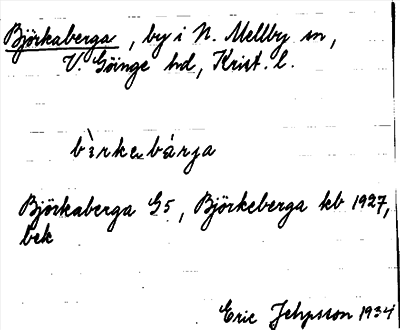 Björkaberga, by i N. Mellby sn,
V. Göinge hd, Krist. l.
Björkaberga G5, Björkeberga kb 1927,
bek
Eric 1934